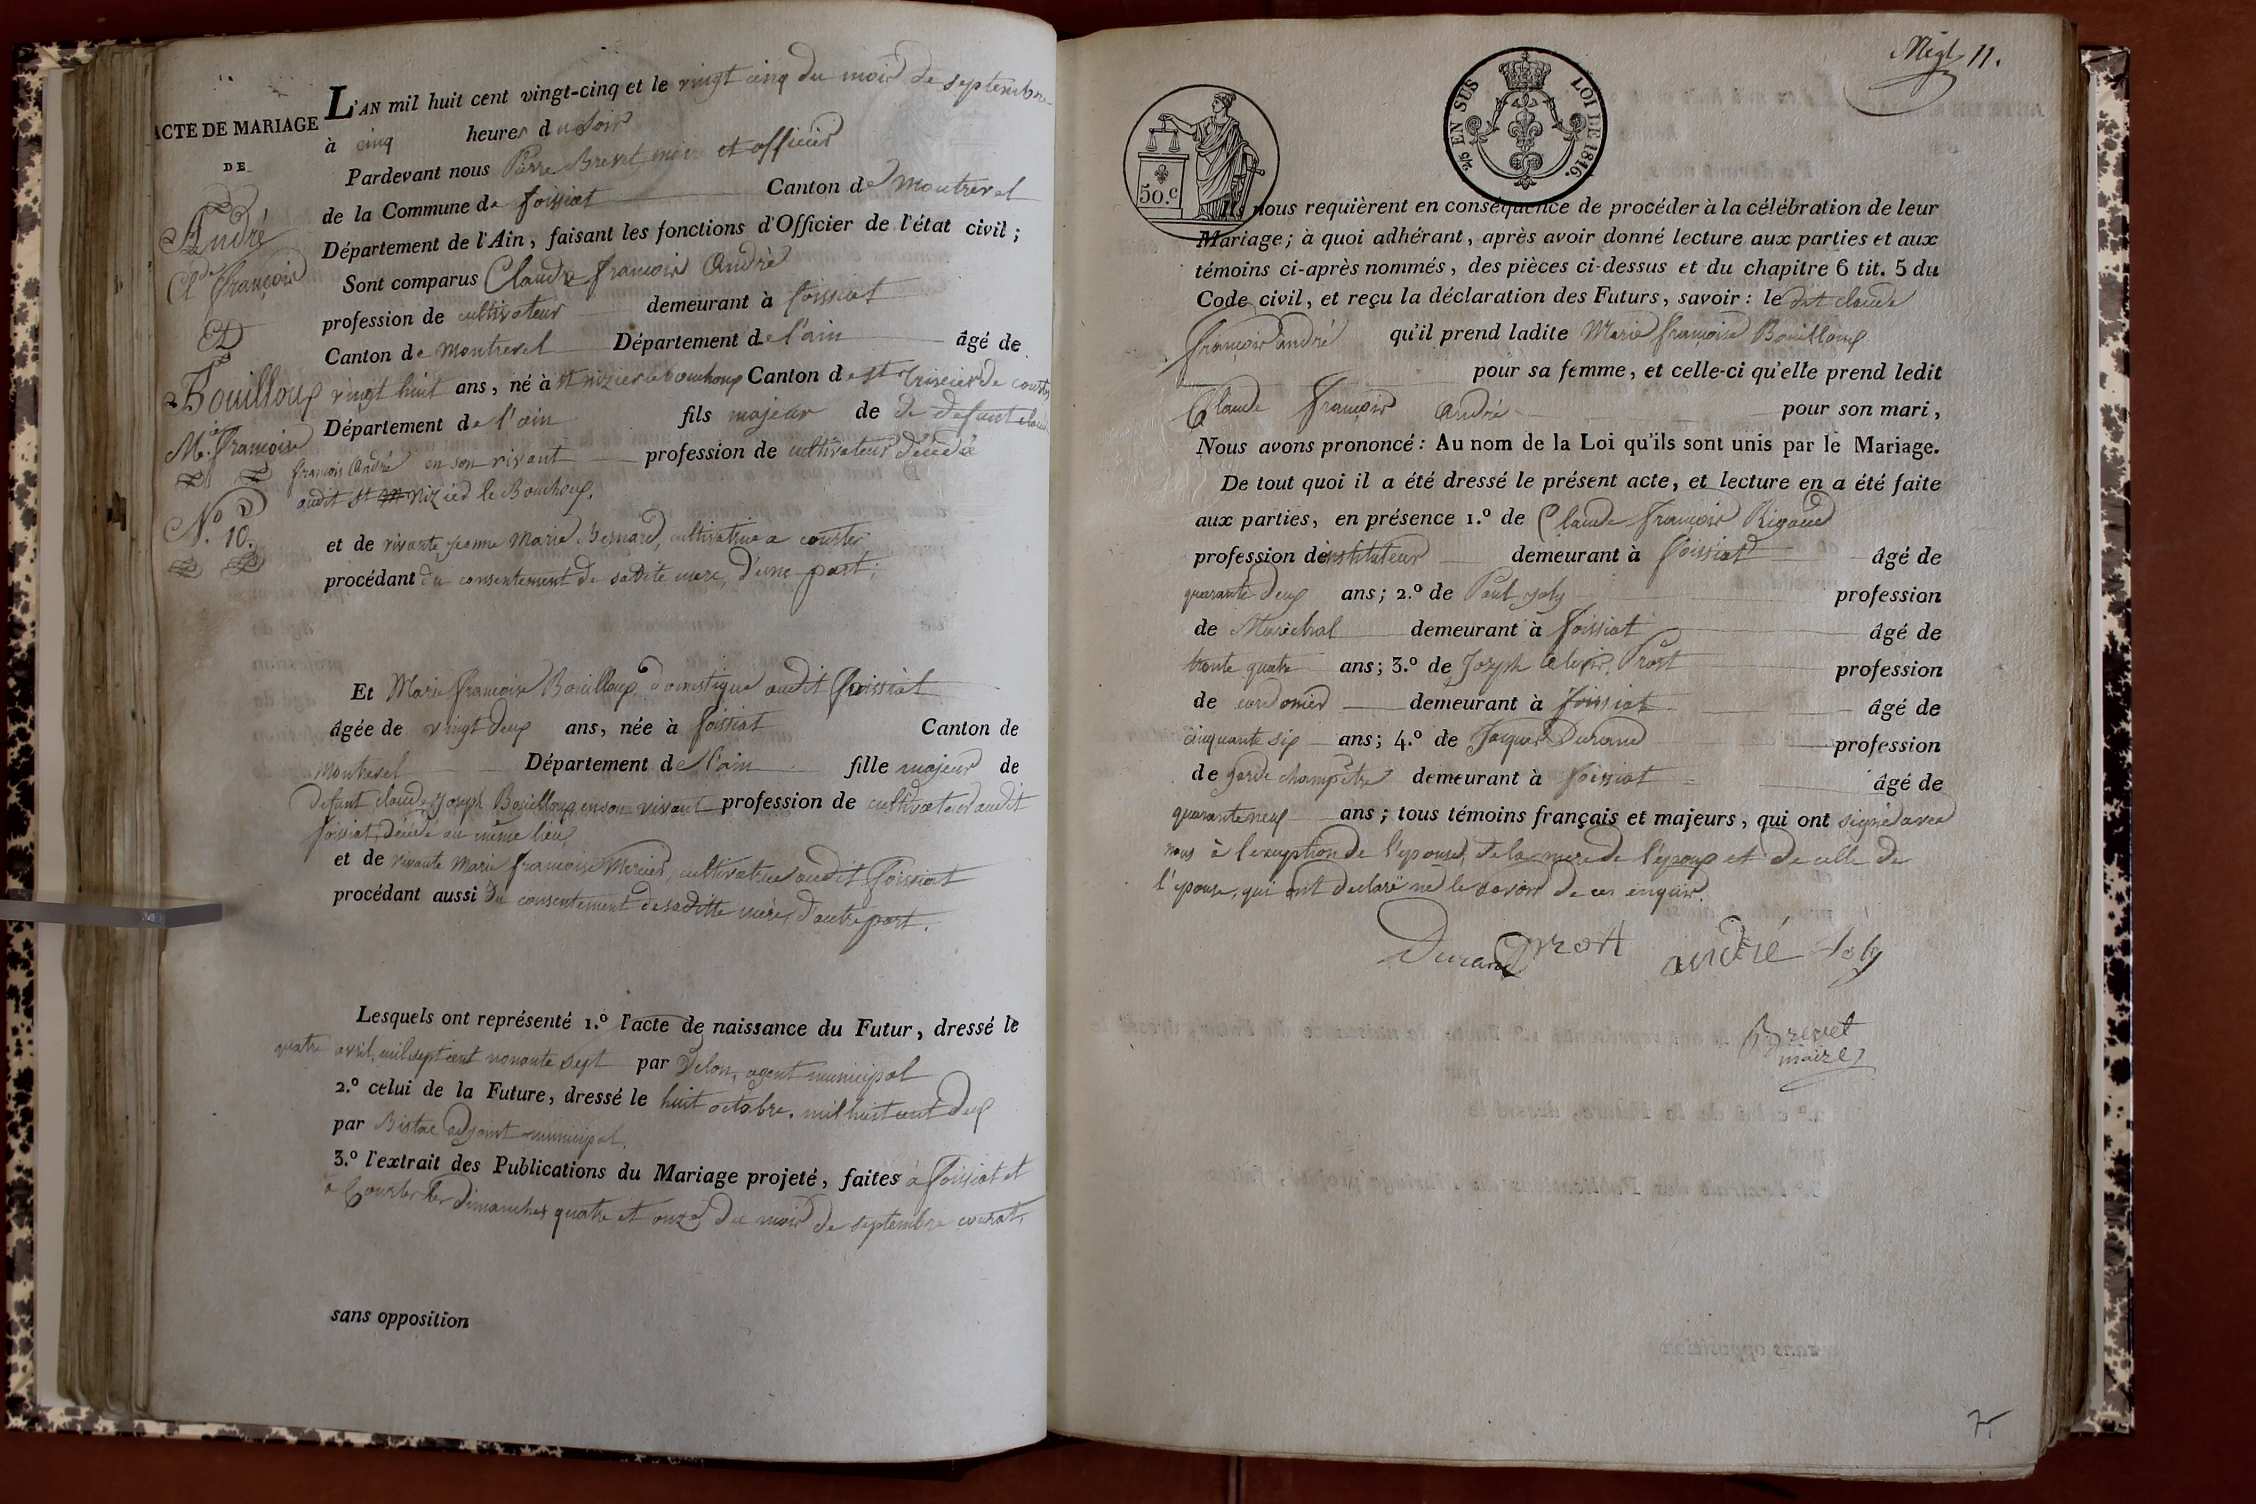 ACTE DE MARIAGE
DE
André
Cde françois
Et
Bouilloux
Mie françoise
N.º 10.
L'AN mil huit cent vingt-cinq et le vingt cinq du mois de septembre
à cinq heures du soir
Pardevant nous Pierre Brevet, maire et officier
de la Commune de foissiat Canton de Montrevel
Département de l'Ain, faisant les fonctions d'Officier de l'état civil;
Sont comparus Claude françois André
profession de cultivateur demeurant à foissiat
Canton de Montrevel Département de l'ain âgé de
vingt huit ans, né à st nizier le bouchoux Canton de st trivier de courtes
Département de l'ain fils majeur de de defunt claude
françois André en son vivant profession de cultivateur décédé
audit st nizier le Bouchoux,
et de vivante jeanne Marie Bernard, cultivatrice a courtes
procédant du consentement de sadite mere, d'une part;
Et Marie françoise Bouilloux domestique audit foissiat
âgée de vingt deux ans, née à foissiat Canton de
Montrevel Département de l'ain fille majeur de
defunt claude joseph Bouilloux en son vivant profession de cultivateur audit
foissiat, décédé au même lieu,
et de vivante Marie françoise Mercier, cultivatrice audit foissiat
procédant aussi du consentement de saditte mère, d'autre part.
Lesquels ont représenté 1.º l'acte de naissance du Futur, dressé le
quatre avril, mil sept cent nonante sept par Delon, agent municipal
2.º celui de la Future, dressé le huit octobre, mil huit cent deux
par Bistac adjoint municipal,
3.º l'extrait des Publications du Mariage projeté, faites à foissiat et
a Courtes les dimanches quatre et onze du mois de septembre courat,
sans opposition
11.
50.c
2/5 EN SUS LOI DE 1816.
Ils nous requièrent en conséquence de procéder à la célébration de leur
Mariage; à quoi adhérant, après avoir donné lecture aux parties et aux
témoins ci-après nommés, des pièces ci-dessus et du chapitre 6 tit. 5 du
Code civil, et reçu la déclaration des Futurs, savoir: le dit claude
françois andré qu'il prend ladite Marie françoise Bouilloux
pour sa femme, et celle-ci qu'elle prend ledit
Claude françois André pour son mari,
Nous avons prononcé: Au nom de la Loi qu'ils sont unis par le Mariage.
De tout quoi il a été dressé le présent acte, et lecture en a été faite
aux parties, en présence 1.º de Claude françois Rigaud
profession de instituteur demeurant à foissiat âgé de
quarante deux ans; 2.º de Paul Joly profession
de Maréchal demeurant à foissiat âgé de
trente quatre ans; 3.º de Joseph Alexis Prost profession
de cordonier demeurant à foissiat âgé de
cinquante six ans; 4.º de Jacques Durand profession
de garde champêtre demeurant à foissiat âgé de
quarante neuf ans; tous témoins français et majeurs, qui ont signé avec
nous à l'exception de l'epouse, de la mere de l'epoux et de celle de
l'epouse, qui ont declaré ne le savoir de ce enquis.
Durand prost andré Joly
Brevet
maire